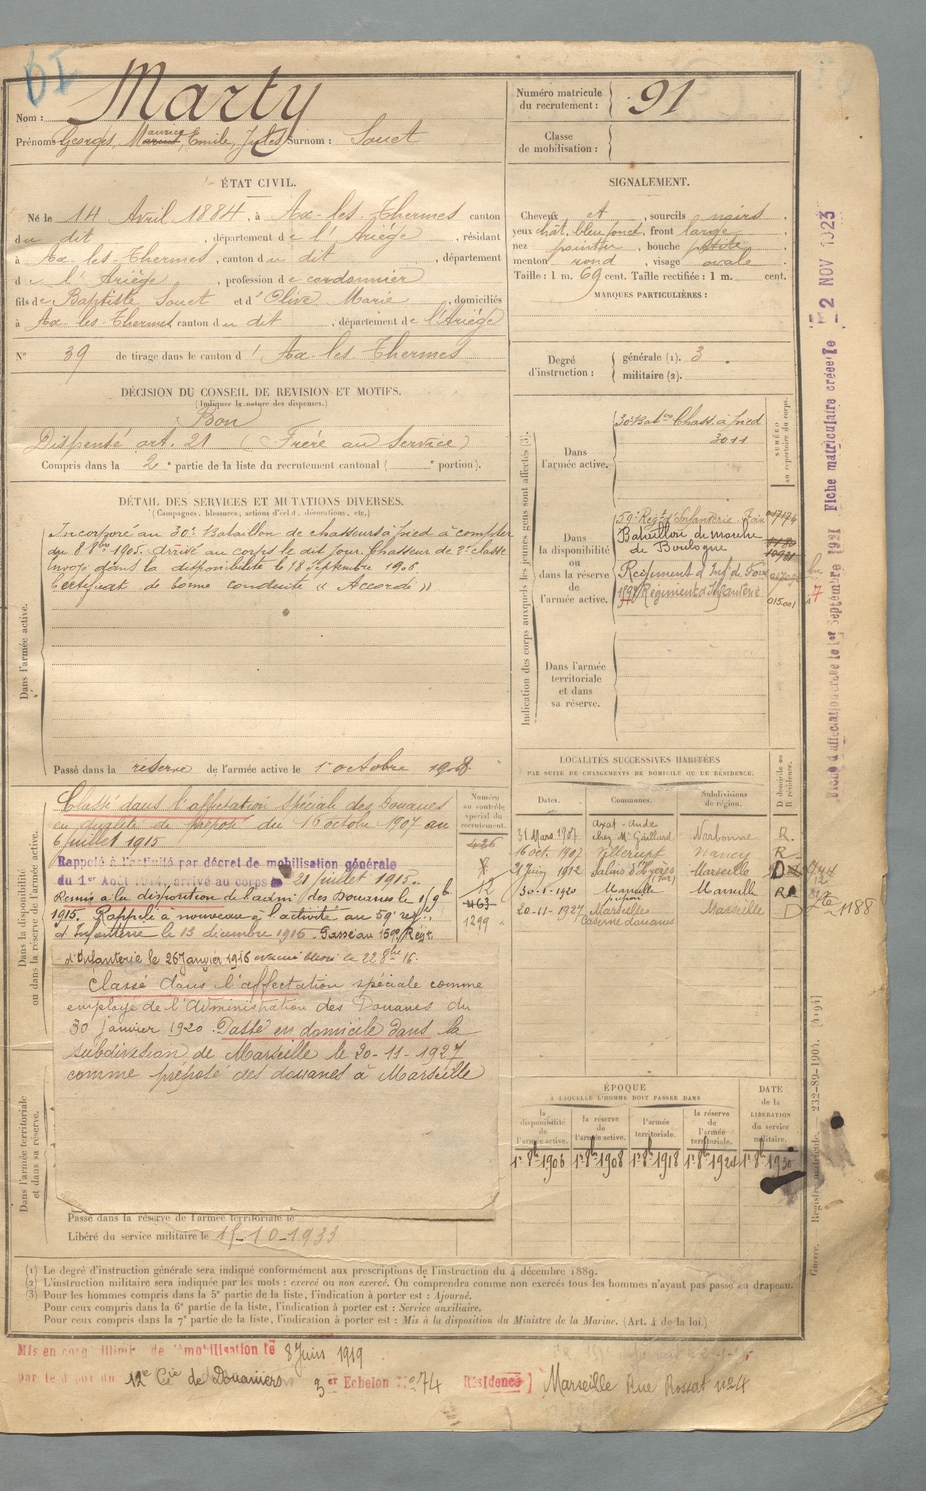 BI
Nom : Marty
Prénoms Georges, Maurice, Emile, Jules Surnom : Souet
Numéro matricule du recrutement : 91
Classe de mobilisation :
ÉTAT CIVIL.
Né le 14 Avril 1884, à Ax-les-Thermes canton
du dit, département de l'Ariège, résidant
à Ax-les-Thermes, canton du dit, département
de l'Ariège, profession de cordonnier
fils de Baptiste Souet et d'Olive Marie, domiciliés
à Ax-les-Thermes canton du dit, département de l'Ariège
N° 39 de tirage dans le canton d' Ax-les-Thermes
SIGNALEMENT.
Cheveux et, sourcils noirs,
yeux chât. bleu foncé, front large
nez pointu, bouche petite,
menton rond, visage ovale.
Taille : 1 m. 69 cent. Taille rectifiée : 1 m. cent.
MARQUES PARTICULIÈRES :
Degré d'instruction : générale (1). 3.
militaire (2).
DÉCISION DU CONSEIL DE REVISION ET MOTIFS.
(Indiquer la nature des dispenses.)
Bon
Dispensé art. 21 (Frère au Service)
Compris dans la 2e partie de la liste du recrutement cantonal ( e portion).
DÉTAIL DES SERVICES ET MUTATIONS DIVERSES.
(Campagnes, blessures, actions d'éclat, décorations, etc.)
Dans l'armée active.
Incorporé au 30e Bataillon de chasseurs à pied à compter
du 8 8bre 1905. Arrivé au corps le dit jour. Chasseur de 2e classe
Envoyé dans la disponibilité le 18 Septembre 1906
Certificat de bonne conduite « Accordé »
Passé dans la réserve de l'armée active le 1er octobre 1908
Indication des corps auxquels les jeunes gens sont affectés (3).
NUMÉRO au répertoire du corps.
Dans l'armée active.
30e Baton Chass. à pied
3011
Dans la disponibilité ou dans la réserve de l'armée active.
59e Régt d'Infanterie. Foix
Bataillon de marche
de Boulogne
Régiment d'Inf. de Foix
159e Régiment d'Infanterie
015.001
Dans l'armée territoriale et dans sa réserve.
Dans la disponibilité ou dans la réserve de l'armée active.
Classé dans l'affectation spéciale des Douanes
en qualité de préposé du 16 octobre 1907 au
6 juillet 1915
Rappelé à l'activité par décret de mobilisation générale
du 1er Août 1914, arrivé au corps le 21 juillet 1915.
Remis à la disposition de l'admon des Douanes le 1 9b
1915. Rappelé à nouveau à l'activité au 59e régt
d'Infanterie le 13 décembre 1915. Passé au 159e Régt
d'Infanterie le 26 Janvier 1916 évacué blessé le 22 8bre 16.
Classé dans l'affectation spéciale comme
employé de l'Administration des Douanes du
30 janvier 1920. Passé en domicile dans la
subdivision de Marseille le 20-11-1927
comme préposé des douanes à Marseille
Numéro au contrôle spécial du recrutement.
426
12
463
1299
LOCALITÉS SUCCESSIVES HABITÉES
PAR SUITE DE CHANGEMENTS DE DOMICILE OU DE RÉSIDENCE.
Dates. Communes. Subdivisions de région. D domicile ou R résidence.
31 Mars 1907 Axat-Aude chez Mr Gaillard Narbonne R.
16 oct. 1907 Villerupt Nancy R.
21 Juin 1912 Salins d'Hyères (Var) Marseille D
30-1-1920 Marseille Marseille R
20-11-1927 Marseille caserne douanes Marseille D 1188
ÉPOQUE
À LAQUELLE L'HOMME DOIT PASSER DANS
la disponibilité de l'armée active. la réserve de l'armée active. l'armée territoriale. la réserve de l'armée territoriale. DATE de la LIBÉRATION du service militaire.
1er 8b 1906 1er 8b 1908 1er 8b 1918 1er 8b 1924 1er 8b 1930
Dans l'armée territoriale et dans sa réserve.
Passé dans la réserve de l'armée territoriale le
Libéré du service militaire le 15-10-1933
(1) Le degré d'instruction générale sera indiqué conformément aux prescriptions de l'instruction du 4 décembre 1889.
(2) L'instruction militaire sera indiquée par les mots : exercé ou non exercé. On comprendra comme non exercés tous les hommes n'ayant pas passé au drapeau.
(3) Pour les hommes compris dans la 5e partie de la liste, l'indication à porter est : Ajourné.
Pour ceux compris dans la 6e partie de la liste, l'indication à porter est : Service auxiliaire.
Pour ceux compris dans la 7e partie de la liste, l'indication à porter est : Mis à la disposition du Ministre de la Marine. (Art. 4 de la loi.)
Mis en congé illimité de démobilisation le 8 Juin 1919
par le dépôt du 12e Cie de Douaniers 3er Echelon No 74 Résidence] Marseille Rue Rossat n°4
Fiche d'affectation créée le 1er Septembre 1921 Fiche matriculaire créée le 2 NOV 1923
Guerre. — Registre matricule. — 232-89-1904. [4-94]